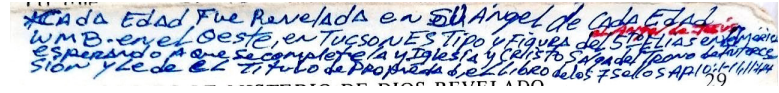 *CAdA EdAd Fue RevelAdA en SU Ángel de CAdA EdAd
WMB-en el Oeste, en Tucson ES Tipo y FiguRA del 5º ELIAS en América
esperando A que se complete lA Iglesia y CRISTO SAlga del TRono de InteRce
Sión y le de el Título de Propiedad, el LibRo de los 7 Sellos AP
MISTERIO DE DIOS REVELADO 29